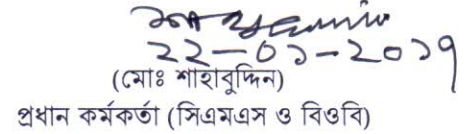 ২২-০১-২০১৭
(মোঃ শাহাবুদ্দিন)
প্রধান কর্মকর্তা (সিএমএস ও বিওবি)